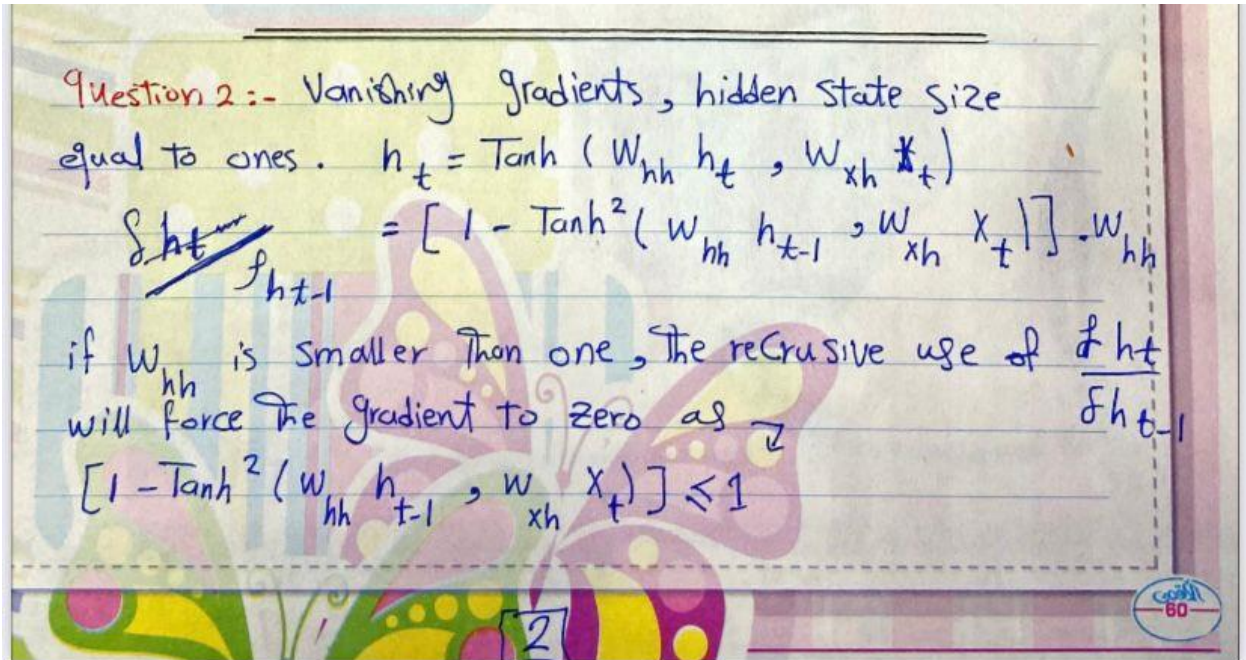 Question 2 :- Vanishing gradients, hidden state size
equal to ones. h_t = Tanh (W_hh h_t , W_xh X_t)
δht / δht-1 = [1 - Tanh² (W_hh h_t-1 , W_xh X_t)] . W_hh
if W_hh is smaller Than one, The recrusive use of δht / δht-1
will force The gradient to zero as
[1 - Tanh² (W_hh h_t-1 , W_xh X_t)] ≤ 1
2
60